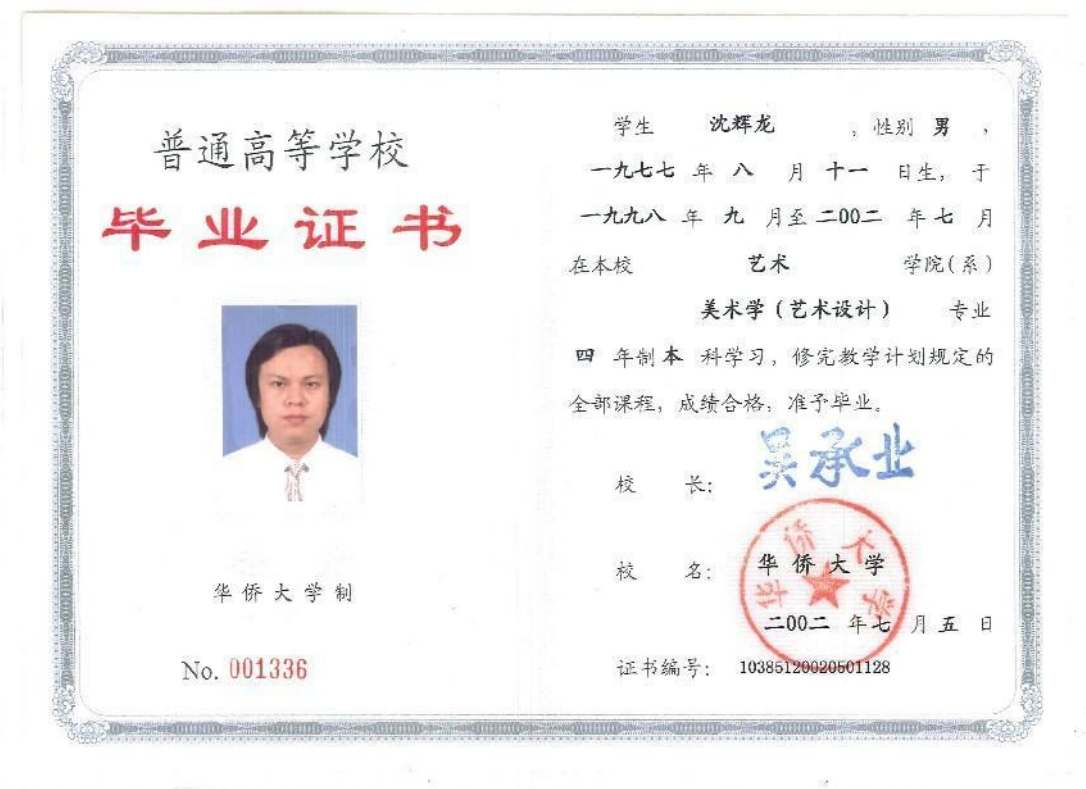 普通高等学校
毕业证书
华侨大学制
No. 001336
学生 沈辉龙 ，性别 男 ，
一九七七 年 八 月 十一 日生，于
一九九八 年 九 月至 二00二 年 七 月
在本校 艺术 学院（系）
美术学（艺术设计） 专业
四 年制 本 科学习，修完教学计划规定的
全部课程，成绩合格，准予毕业。
校 长： 吴承业
华侨大学
校 名： 华侨大学
二00二 年 七 月 五 日
证书编号： 10385120020501128